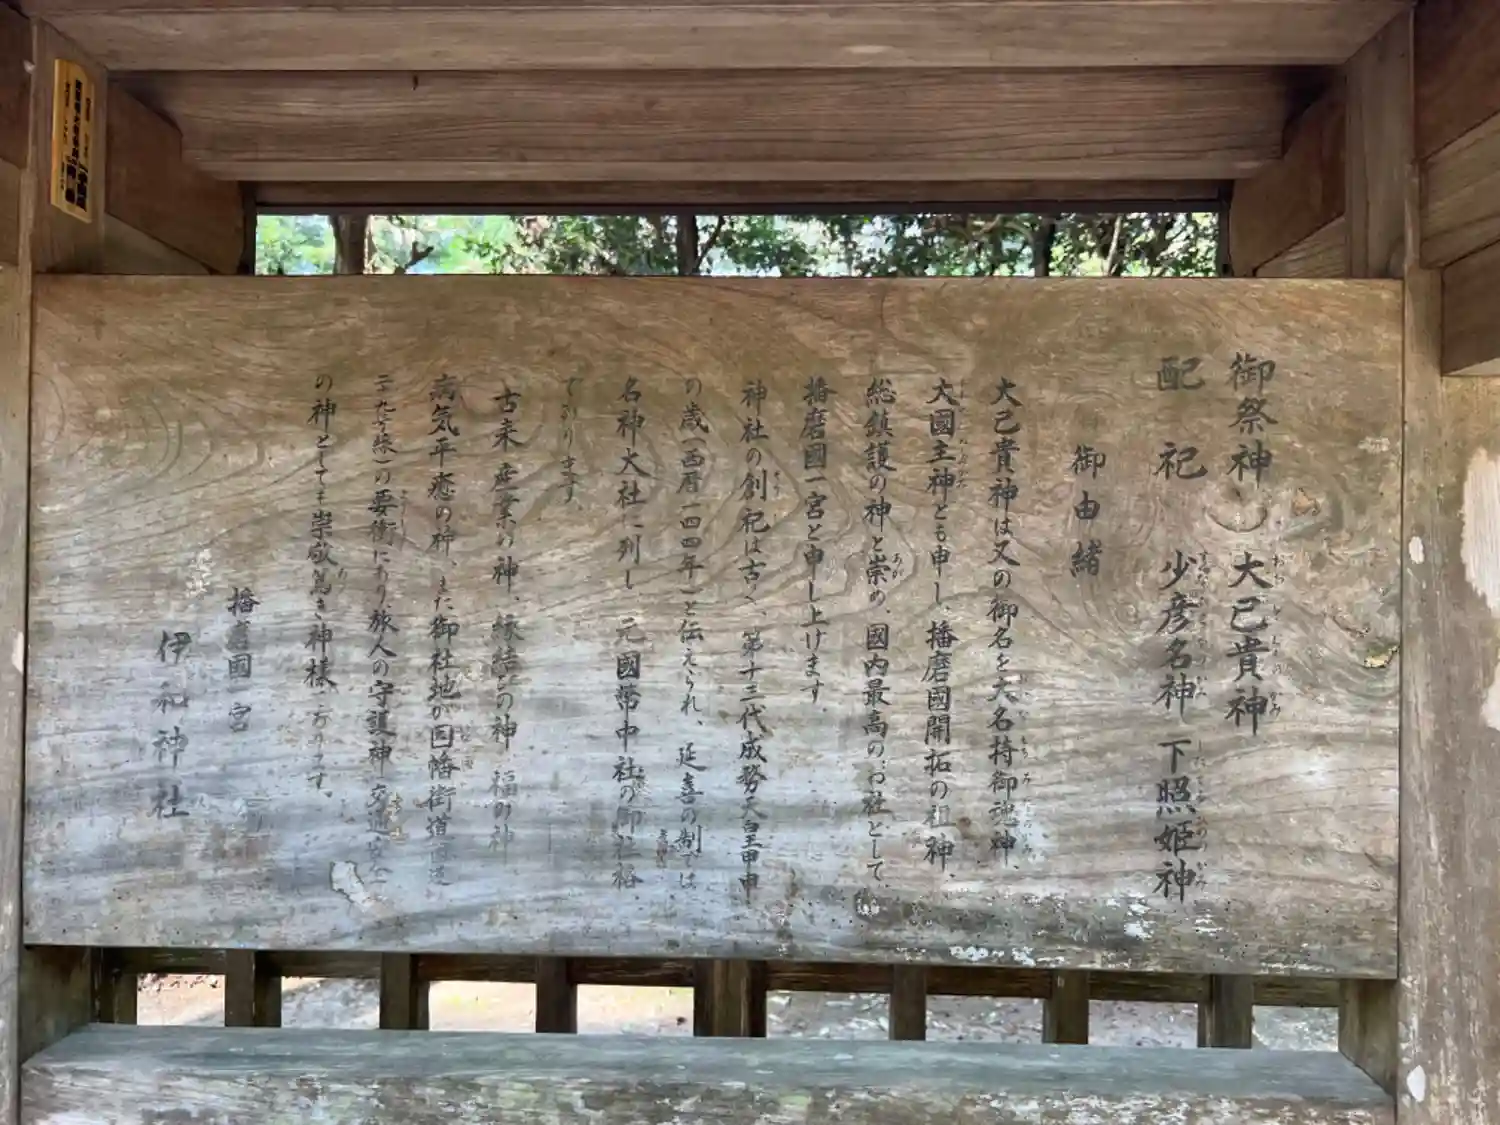 御祭神 大己貴神
配祀 少彦名神 下照姫神
御由緒
大己貴神は又の御名を大名持御魂神、
大國主神とも申し、播磨國開拓の祖神、
総鎮護の神と崇め、國内最高のお社として、
播磨國一宮と申し上げます
神社の創祀は古く、第十三代成務天皇甲申
の歳(西暦一四四年)と伝えられ、延喜の制では
名神大社に列し、元國幣中社の御社格
であります。
古来、産業の神、縁結びの神、福の神
病気平癒の神、また御社地が因幡街道
二十九号線)の要衝にあり旅人の守護神、交通安全
の神としても崇敬篤き神様であります。
播磨國一宮
伊和神社